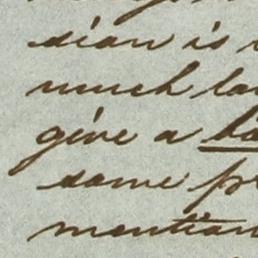 sian is
much la
give a ha
same pr
mention